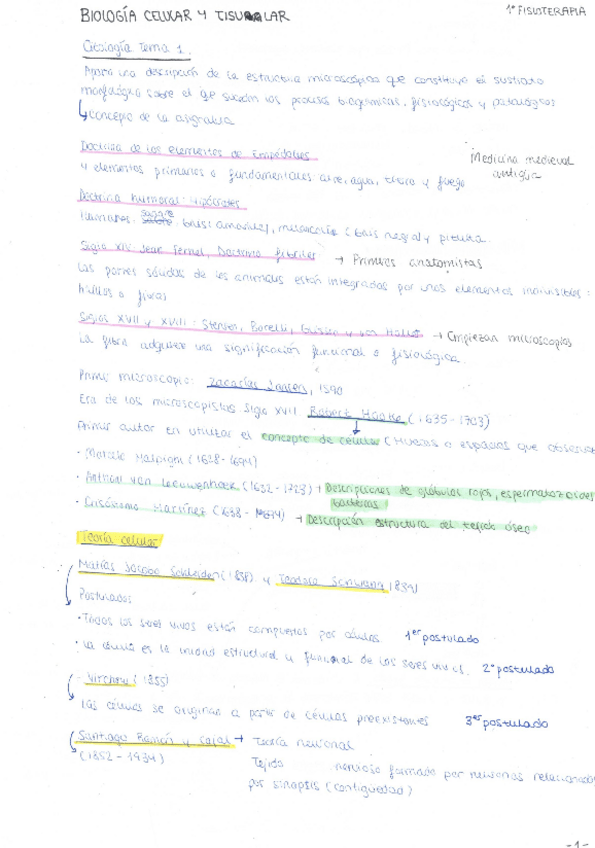 BIOLOGÍA CELULAR Y TISULAR
1º FISIOTERAPIA
Citología Tema 1.
Aporta una descripción de la estructura microscópica que constituye el sustrato
morfológico sobre el que suceden los procesos bioquímicos, fisiológicos y patológicos
↳ concepto de la asignatura
Doctrina de los elementos de Empédocles
Medicina medieval
antigua
4 elementos primarios o fundamentales: aire, agua, tierra y fuego
Doctrina humoral: Hipócrates
Humores: sangre, bilis amarilla, melancolía (bilis negra) y pituita.
Siglo XIV: Jean Fernel, Doctrina fibrilar → Primeros anatomistas
Las partes sólidas de los animales están integradas por unos elementos indivisibles:
hilillos o fibras
Siglos XVII y XVIII: Stensen, Borelli, y von Haller → Empiezan microscopios
La fibra adquiere una significación funcional o fisiológica.
Primer microscopio: Zacarías Jansen, 1590
Era de los microscopistas Siglo XVII Robert Hooke (1635-1703)
Primer autor en utilizar el concepto de célula (Huecos o espacios que observa
· Marcelo Malpighi (1628-1694)
· Anthony van Leeuwenhoek (1632-1723) → Descripciones de glóbulos rojos, espermatozoides
bacterias
· Crisóstomo Martínez (1638-1694) → Descripción estructura del tejido óseo
Teoría celular
Matías Jacobo Schleiden (1838) y Teodoro Schwann 1839)
Postulados
· Todos los seres vivos están compuestos por células. 1er postulado
· La célula es la unidad estructural y funcional de los seres vivos. 2º postulado
· Virchow (1855)
Las células se originan a partir de células preexistentes 3er postulado
Santiago Ramón y Cajal → Teoría neuronal
(1852-1934)
Tejido nervioso formado por neuronas relacionadas
por sinapsis (contigüedad)
-1-